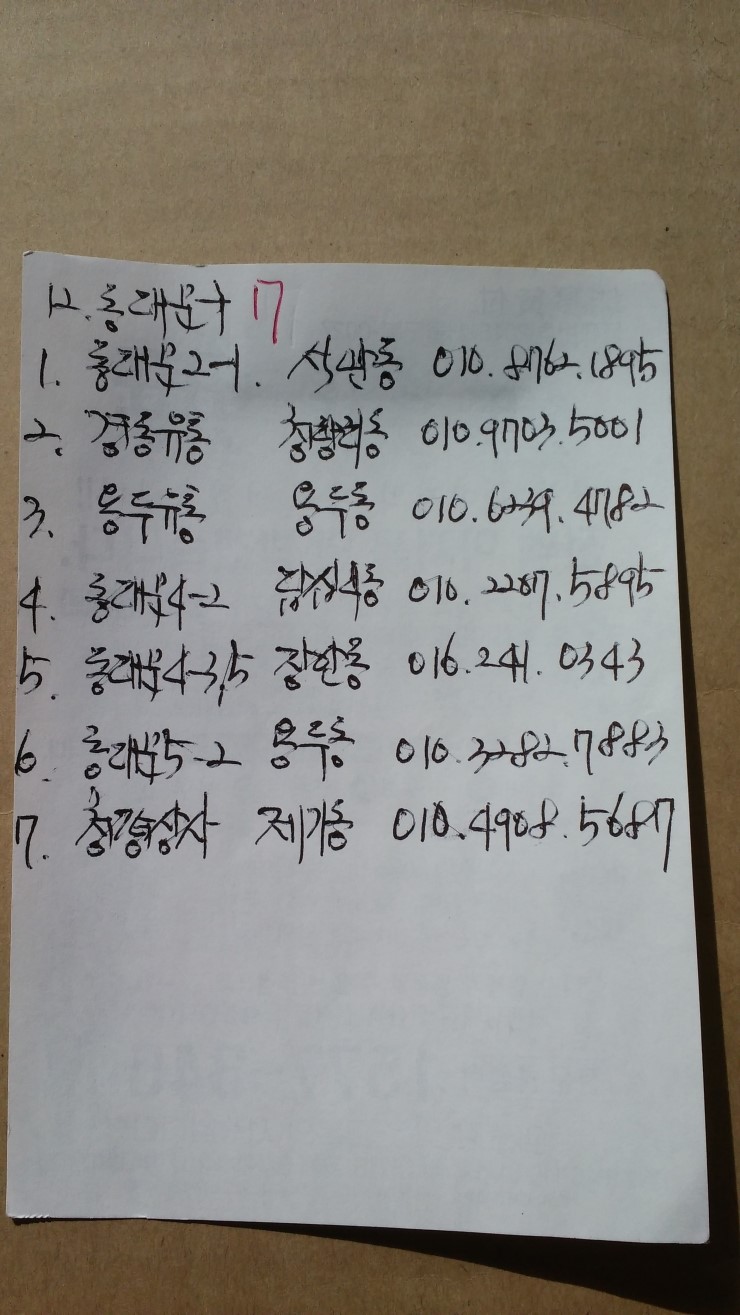 12. 동대문구 17
1. 동대문2-1. 석관동 010.8762.1895
2. 경동유통 청량리동 010.9703.5001
3. 용두유통 용두동 010.6239.4782
4. 동대문4-2 답십리동 010.2207.5895
5. 동대문4-3,5 장안동 016.241.0343
6. 동대문5-2 용두동 010.3282.7883
7. 청경상사 제기동 010.4908.5687